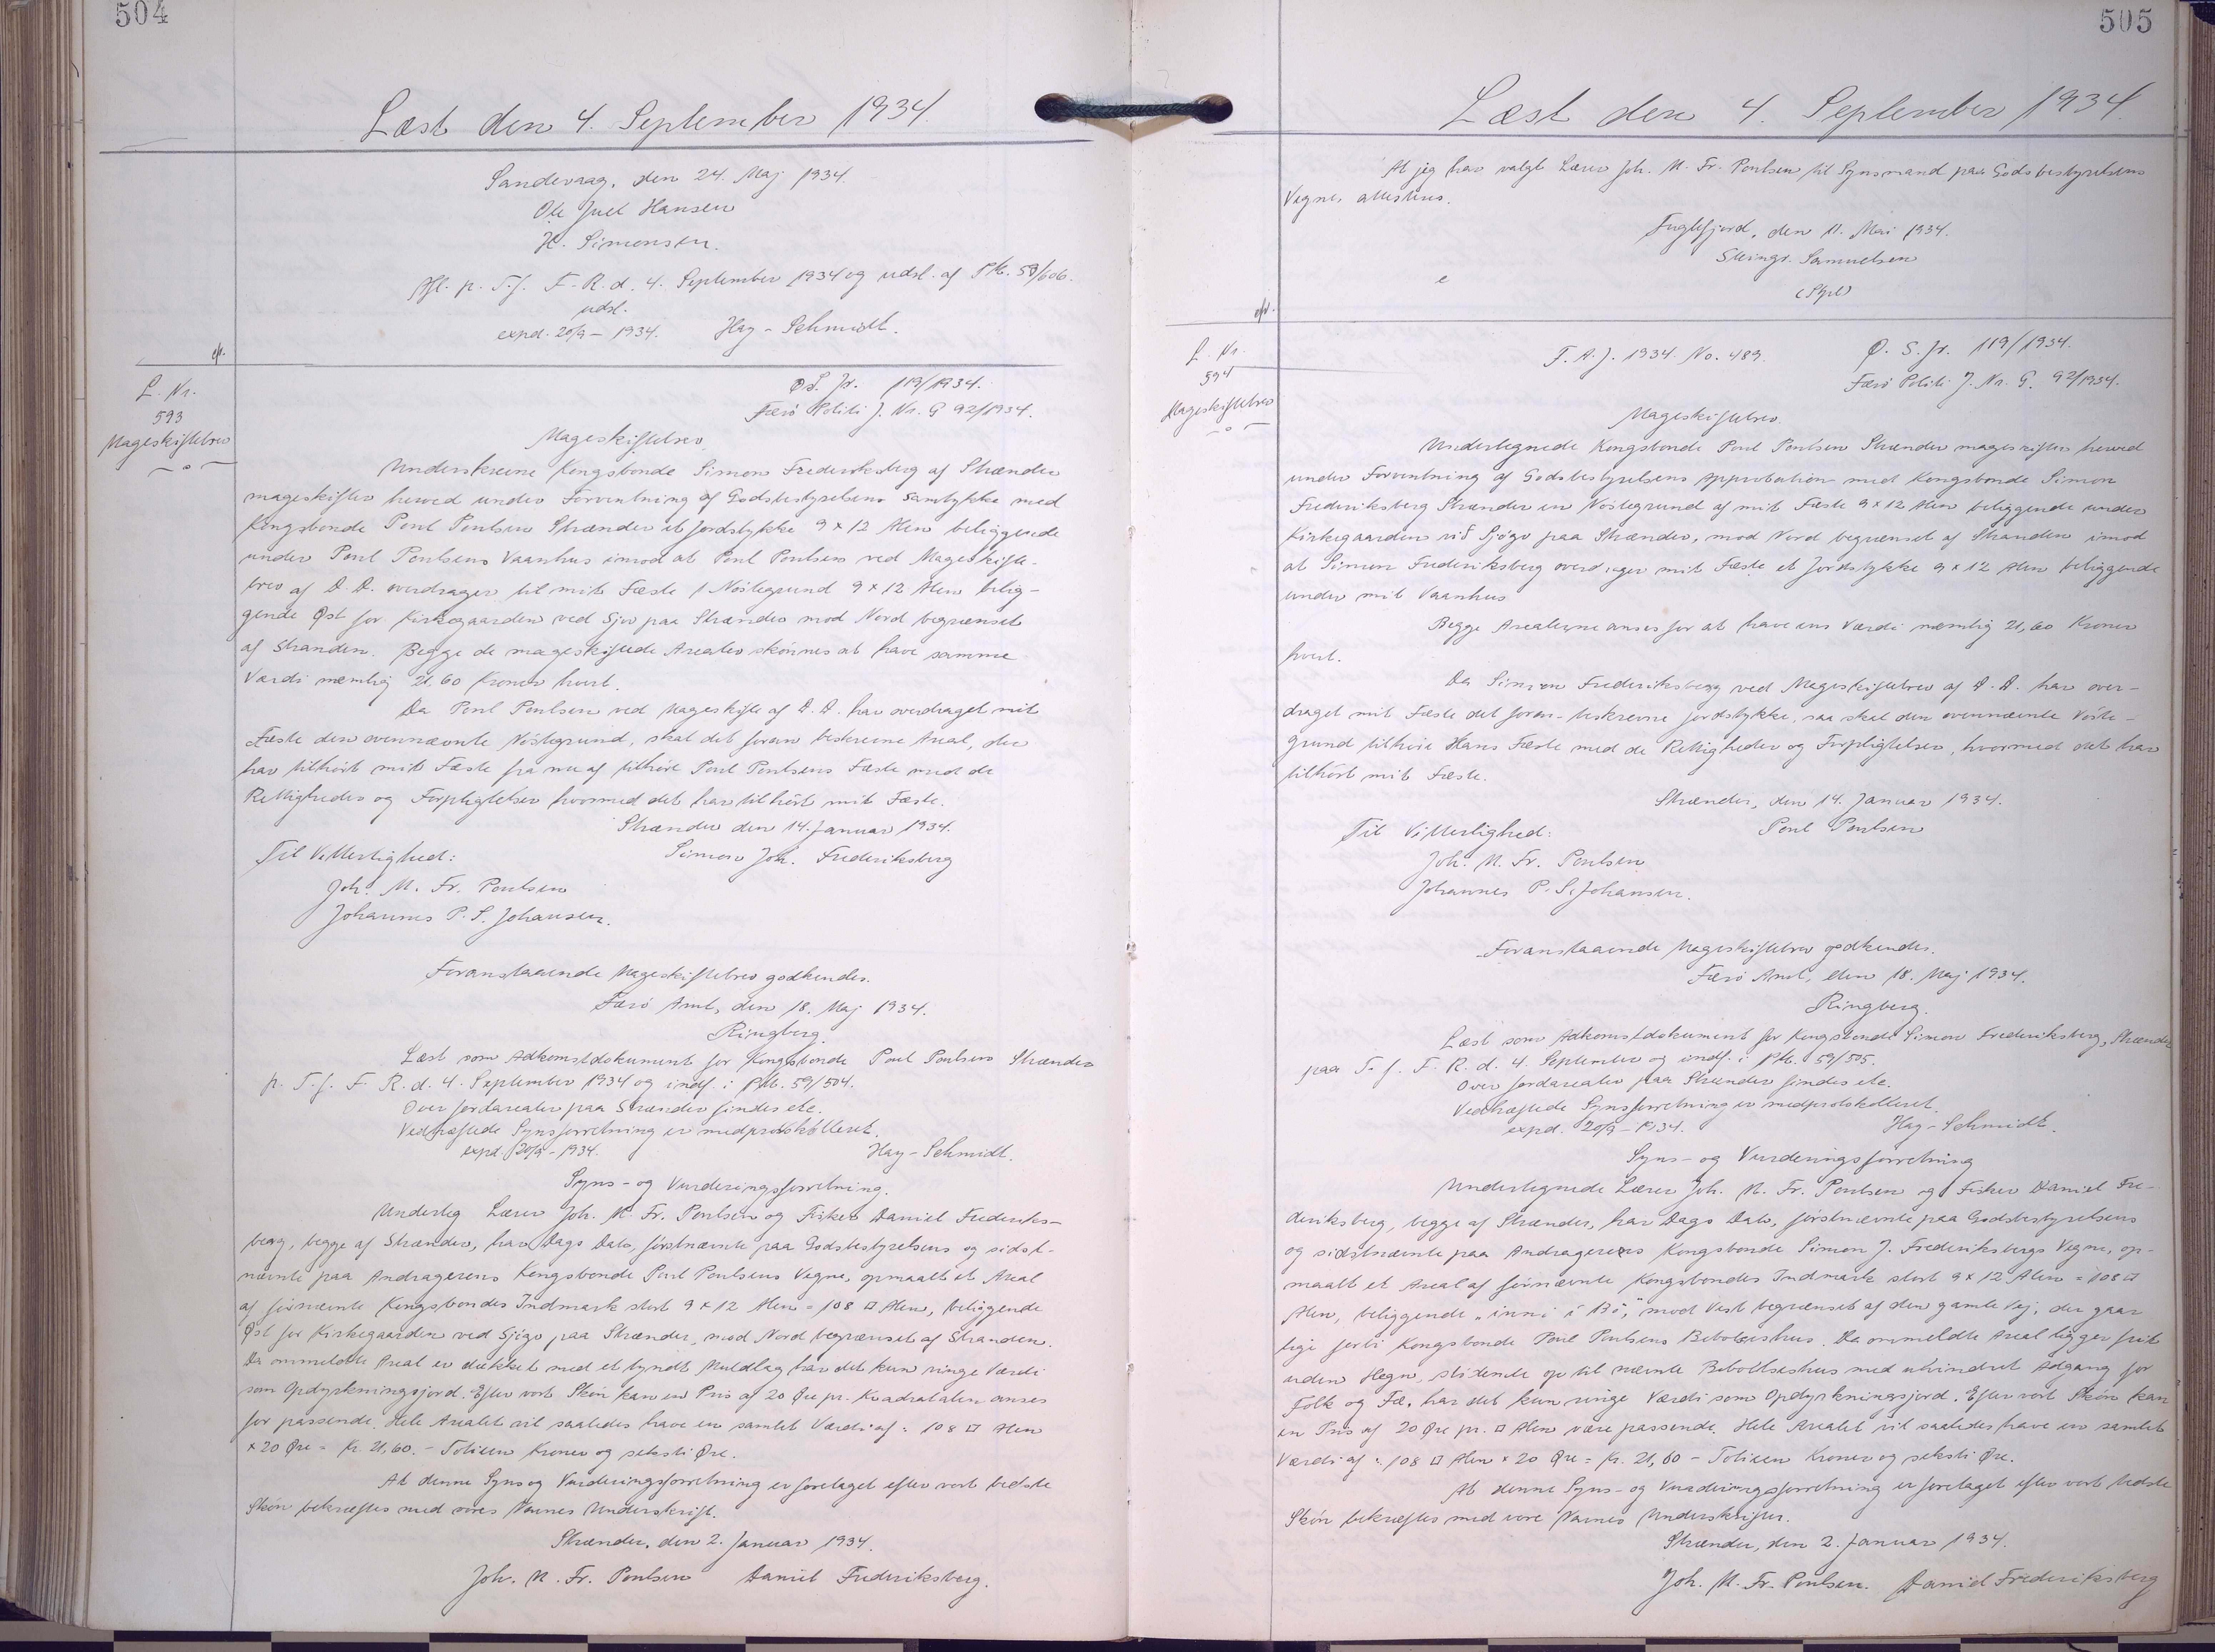 504
Læst den 4. September 1934.
Sandevaag, den 24. Maj 1934.
Ole Juel Hansen
H. Simonsen.
Afl. p. T.f. F.R.d. 4. September 1934 og udsl. af Ptk. 59/606.
udsl.
exped. 20/9 - 1934. Hay-Schmidt.
L. Nr.
593
Mageskiftebrev
Ø.S. Jr. 119/1934.
Færö Politi J. Nr. G 92/1934.
Mageskiftebrev
Underskrevne Kongsbonde Simon Frederiksberg af Strænder
mageskifter herved under Forventning af Godsbestyrelsens Samtykke med
Kongsbonde Poul Poulsen Strænder et Jordstykke 9 x 12 Alen beliggende
under Poul Poulsens Vaanhus imod at Poul Poulsen ved Mageskifte-
brev af D.D. overdrager til mit Fæste 1 Nöstegrund 9 x 12 Alen belig-
gende Øst for Kirkegaarden ved Sjov paa Strænder mod Nord begrænset
af Stranden. Begge de mageskiftede Arealer skönnes at have samme
Værdi nemlig 21,60 Kroner hvert.
Da Poul Poulsen ved Mageskifte af D.D. har overdraget mit
Fæste den ovennævnte Nöstegrund, skal det foran beskrevne Areal, der
har tilhört mit Fæste fra nu af tilhöre Poul Poulsens Fæste med de
Rettigheder og Forpligtelser hvormed det har tilhört mit Fæste.
Strænder den 14. Januar 1934.
Til Vitterlighed: Simon Joh. Frederiksberg
Joh. M. Fr. Poulsen
Johannes P.S. Johansen.
Foranstaaende Mageskiftebrev godkendes.
Færö Amt, den 18. Maj 1934.
Ringberg.
Læst som Adkomstdokument for Kongsbonde Poul Poulsen Strænder
p. T.f. F R.d. 4. September 1934 og indf. i Ptk. 59/504.
Over Jordarealer paa Strænder findes ete.
Vedhæftede Synsforretning er medprotokolleret.
expd. 20/9 - 1934. Hay-Schmidt.
Syns- og Vurderingsforretning.
Underteg Lærer Joh. M. Fr. Poulsen og Fisker Daniel Frederiks-
berg, begge af Strænder, har Dags Dato, førstnævnte paa Godsbestyrelsens og sidst-
nævnte paa Andragerens Kongsbonde Poul Poulsens Vegne, opmaalt et Areal
af førnævnte Kongsbondes Indmark stort 9 x 12 Alen = 108 □ Alen, beliggende
Øst for Kirkegaarden ved Sjógv paa Strænder, mod Nord begrænset af Stranden.
Da ommeldte Areal er dækket med et tyndt Muldlag har det kun ringe Værdi
som Opdyrkningsjord. Efter vort Skön kan en Pris af 20 Øre pr. Kvadratalen anses
for passende. Hele Arealet vil saaledes have en samlet Værdi af: 108 □ Alen
x 20 Øre = Kr. 21,60. - Toliven Kroner og seksti Øre.
At denne Syns og Vurderingsforretning er foretaget efter vort bedste
Skön bekræftes med vores Navnes Underskrift.
Strænder, den 2. Januar 1934.
Joh. M. Fr. Poulsen Daniel Frederiksberg.
505
Læst den 4. September 1934.
At jeg har valgt Lærer Joh. M. Fr. Poulsen til Synsmand paa Godsbestyrelsens
Vegne, attesteres.
Fuglefjord, den 11. Mai 1934.
Steingr. Samuelsen
L. Nr.
594
Mageskiftebrev
F.A.J. 1934 No. 489. Ø.S. Jr. 119/1934.
Færö Politi J. Nr. G. 92/1934.
Mageskiftebrev.
Undertegnede Kongsbonde Poul Poulsen Strænder mageskifter herved
under Forventning af Godsbestyrelsens Approbation med Kongsbonde Simon
Frederiksberg Strænder en Nöstegrund af mit Fæste 9 x 12 Alen beliggende under
Kirkegaarden við Sjógv paa Strænder, mod Nord begrænset af Stranden imod
at Simon Frederiksberg overdrager mit Fæste et Jordstykke 9 x 12 Alen beliggende
under mit Vaanhus
Begge Arealerne anses for at have ens Værdi nemlig 21,60 Kroner
hvert.
Da Simon Frederiksberg ved Mageskiftebrev af D.D. har over-
draget mit Fæste det foran-beskrevne Jordstykke, saa skal den ovennævnte Nöste-
grund tilhöre Hans Fæste med de Rettigheder og Forpligtelser, hvormed det har
tilhört mit Fæste.
Strænder, den 14. Januar 1934.
Til Vitterlighed: Poul Poulsen
Joh. M. Fr. Poulsen
Johannes P.S. Johansen.
Foranstaaende Mageskiftebrev godkendes.
Færö Amt, den 18. Maj 1934.
Ringberg.
Læst som Adkomstdokument for Kongsbonde Simon Frederiksberg, Strænder
paa T.f. F.R.d. 4. September og indf. i Ptk. 59/505.
Over Jordarealer paa Strænder findes ete.
Vedhæftede Synsforretning er medprotokolleret.
expd. 20/9 - 1934. Hay-Schmidt.
Syns- og Vurderingsforretning
Undertegnede Lærer Joh. M. Fr. Poulsen og Fisker Daniel Fre-
deriksberg, begge af Strænder, har Dags Dato, førstnævnte paa Godsbestyrelsens
og sidstnævnte paa Andragerens Kongsbonde Simon J. Frederiksbergs Vegne, op-
maalt et Areal af førnævnte Kongsbondes Indmark stort 9 x 12 Alen = 108 □
Alen, beliggende "inni i Bö," mod Vest begrænset af den gamle Vej, der gaar
lige forbi Kongsbonde Poul Poulsens Beboelseshus. Da ommeldte Areal ligger frit
uden Hegn, stödende op til nævnte Beboelseshus med uhindret Adgang for
Folk og Fæ, har det kun ringe Værdi som Opdyrkningsjord. Efter vort Skön kan
en Pris af 20 Øre pr. □ Alen være passende. Hele Arealet vil saaledes have en samlet
Værdi af: 108 □ Alen x 20 Øre = Kr. 21,60 - Toliven Kroner og seksti Øre.
At denne Syns- og Vurderingsforretning er foretaget efter vort bedste
Skön bekræftes med vore Navnes Underskrifter.
Strænder, den 2. Januar 1934.
Joh. M. Fr. Poulsen. Daniel Frederiksberg